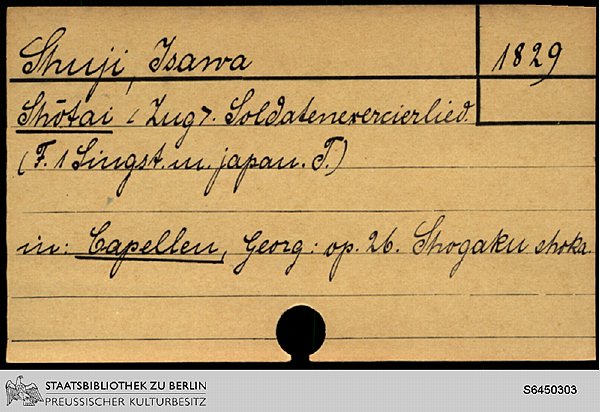 Shuji, Isawa
1829
Shōtai <Zug>. Soldatenexercierlied.
(F. 1 Singst. m. japan. T.)
in: Capellen, Georg: op. 26. Shogaku shoka.
STAATSBIBLIOTHEK ZU BERLIN
PREUSSISCHER KULTURBESITZ
S6450303